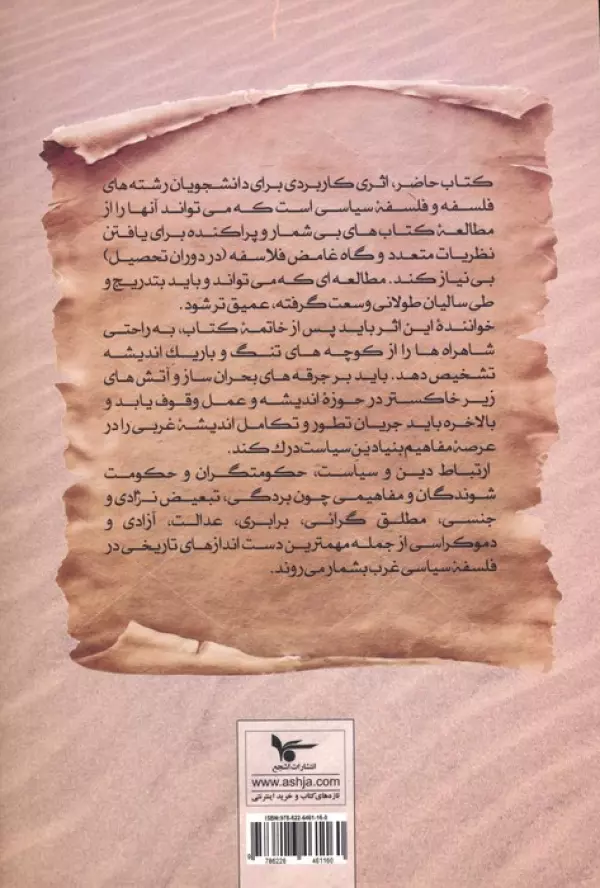 کتاب حاضر، اثری کاربردی برای دانشجویان رشته های
فلسفه و فلسفهٔ سیاسی است که می تواند آنها را از
مطالعهٔ کتاب های بی شمار و پراکنده برای یافتن
نظریات متعدد و گاه غامض فلاسفه (در دوران تحصیل)
بی نیاز کند. مطالعه ای که می تواند و باید بتدریج و
طی سالیان طولانی وسعت گرفته، عمیق تر شود.
خوانندهٔ این اثر باید پس از خاتمهٔ کتاب، به راحتی
شاهراه ها را از کوچه های تنگ و باریک اندیشه
تشخیص دهد. باید بر جرقه های بحران ساز و آتش های
زیر خاکستر در حوزهٔ اندیشه و عمل وقوف یابد و
بالاخره باید جریان تطور و تکامل اندیشهٔ غربی را در
عرصهٔ مفاهیم بنیادین سیاست درک کند.
ارتباط دین و سیاست، حکومتگران و حکومت
شوندگان و مفاهیمی چون بردگی، تبعیض نژادی و
جنسی، مطلق گرائی، برابری، عدالت، آزادی و
دموکراسی از جمله مهمترین دست اندازهای تاریخی در
فلسفهٔ سیاسی غرب بشمار می روند.
انتشارات اشجع
www.ashja.com
تازه‌های کتاب و خرید اینترنتی
ISBN: 978-622-6461-16-0
9 786226 461160